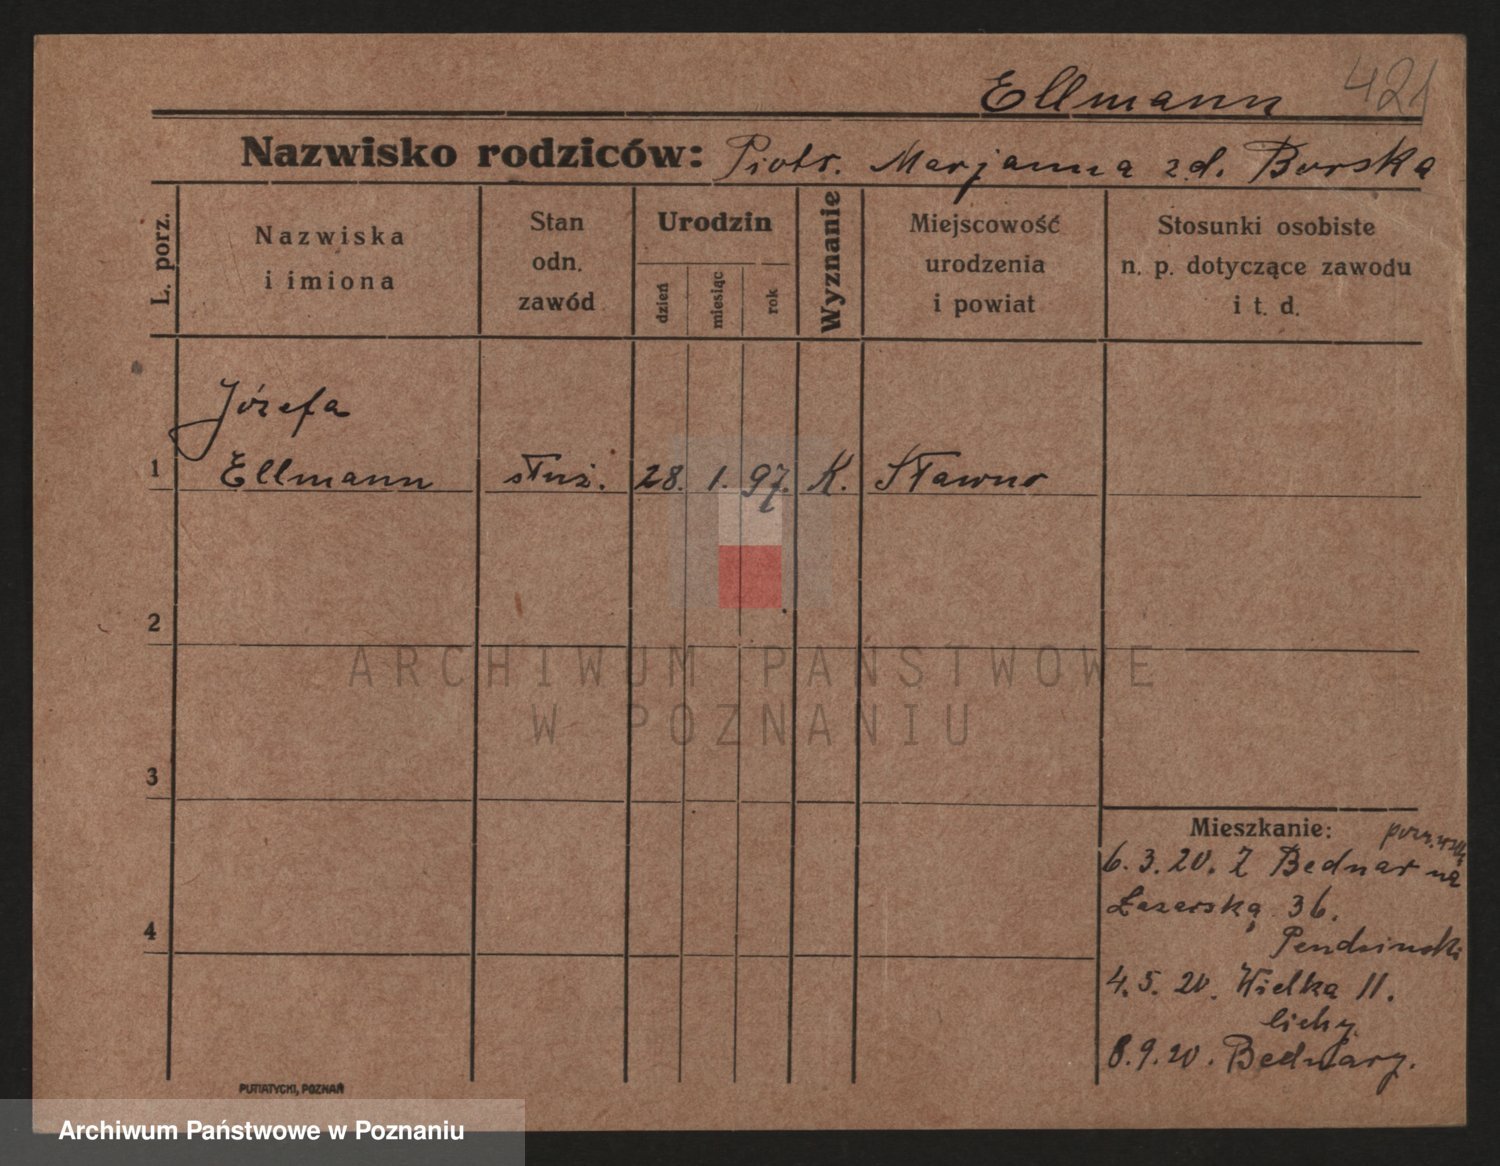 Ellmann 421
Nazwisko rodziców: Piotr. Marjanna zd. Burska
L. porz.
Nazwiska
i imiona
Stan
odn.
zawód
Urodzin
dzień
miesiąc
rok
Wyznanie
Miejscowość
urodzenia
i powiat
Stosunki osobiste
n. p. dotyczące zawodu
i t. d.
Józefa
1 Ellmann służ. 28. 1. 97. K. Sławno
2
ARCHIWUM PAŃSTWOWE
W POZNANIU
3
4
Mieszkanie:
6. 3. 20. Z Bednar na
Łazarską 36.
Pendzinski
4. 5. 20. Wielka 11.
Cichy.
8. 9. 20. Bednary.
PUTIATYCKI, POZNAŃ
Archiwum Państwowe w Poznaniu